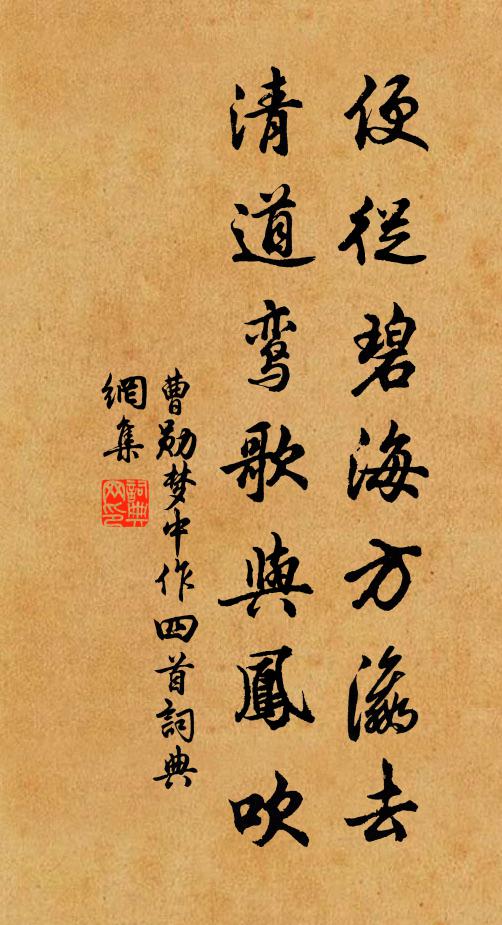 便從碧海方瀛去
清道鸾歌與鳳吹
曹勋梦中作四首詞典
網集
詞典
网印